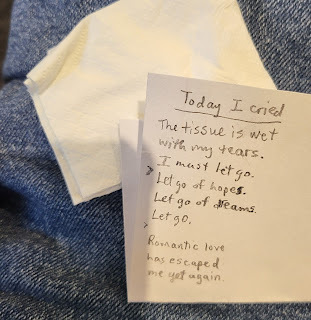 Today I cried
The tissue is wet
with my tears.
I must let go.
Let go of hopes.
Let go of dreams.
Let go.
Romantic love
has escaped
me yet again.